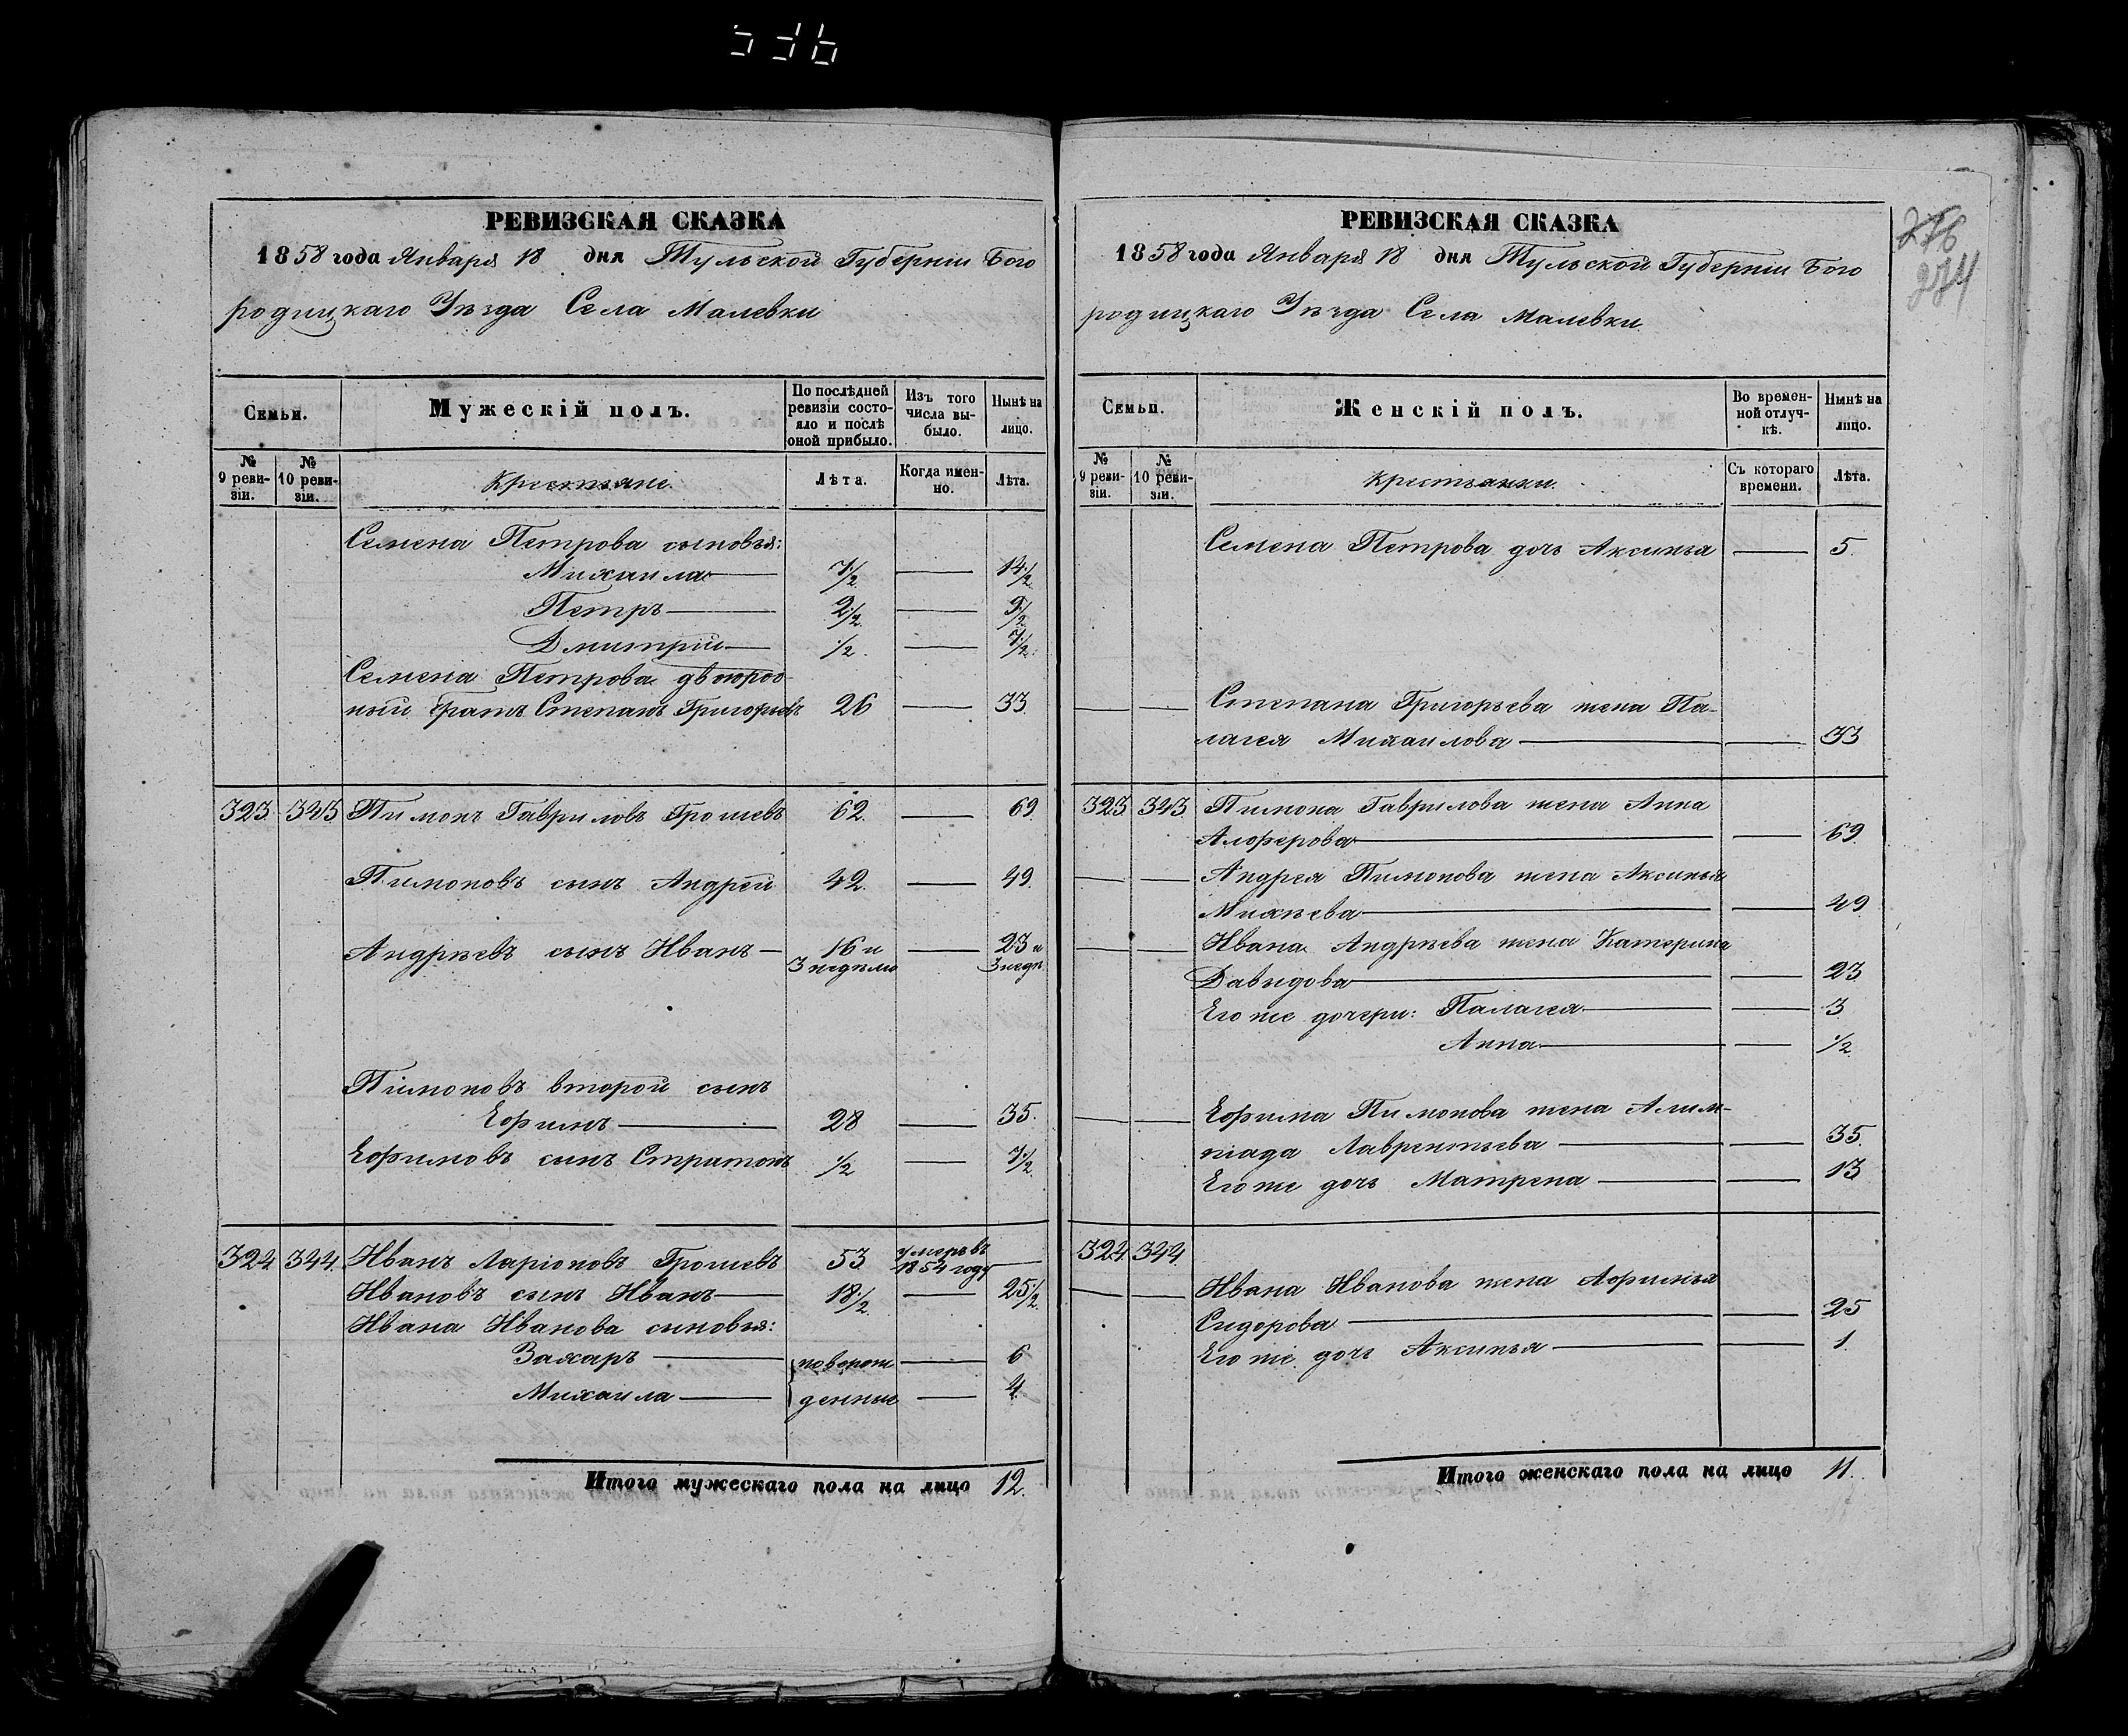 РЕВИЗСКАЯ СКАЗКА
1858 года Января 18 дня Тульской Губерніи Бого
родицкаго Уѣзда Села Малевки
Семьи.
Мужескій полъ.
По послѣдней ревизіи состояло и послѣ оной прибыло.
Изъ того числа выбыло.
Нынѣ на лицо.
№ 9 ревизіи.
№ 10 ревизіи.
Крестьяне
Лѣта.
Когда именно.
Лѣта.
Семена Петрова сыновья:
Михаила — 7½ — 14½
Петръ — 2½ — 9½
Дмитрій — ½ — 7½
Семена Петрова двоюрод-
ный братъ Степанъ Григорьевъ 26 — 33
323 343 Пимонъ Гавриловъ Грошевъ 62 — 69
Пимоновъ сынъ Андрей 42 — 49
Андрѣевъ сынъ Иванъ — 16 и — 23 и
3 недѣли 3 недѣ
Пимоновъ второй сынъ
Ефимъ — 28 — 35
Ефимовъ сынъ Стратонъ ½ — 7½
324 344 Иванъ Ларіоновъ Грошевъ 53 умеръ въ 1854 году —
Ивановъ сынъ Иванъ — 18½ — 25½
Ивана Иванова сыновья:
Захаръ — новорож — 6
Михаила — денные — 4
Итого мужескаго пола на лицо 12.
РЕВИЗСКАЯ СКАЗКА
1858 года Января 18 дня Тульской Губерніи Бого
родицкаго Уѣзда Села Малевки
276
274
Семьи.
Женскій полъ.
Во временной отлучкѣ.
Нынѣ на лицо.
№ 9 ревизіи.
№ 10 ревизіи.
Крестьянки
Съ котораго времени.
Лѣта.
Семена Петрова дочь Аксинья — 5
— — Степана Григорьева жена Па-
лагея Михаилова — — 33
323 343 Пимона Гаврилова жена Анна
Алферова — — 69
— — Андрея Пимонова жена Аксинья
Михѣева — — 49
— — Ивана Андрѣева жена Катерина
Давыдова — — 23
Его же дочери: Палагея — — 3
Анна — — ½
— — Ефима Пимонова жена Алим-
піада Лаврентьева — — 35
Его же дочь Матрена — — 13
324 344
— — Ивана Иванова жена Афимья
Сидорова — — 25
Его же дочь Аксинья — — 1
Итого женскаго пола на лицо 11.